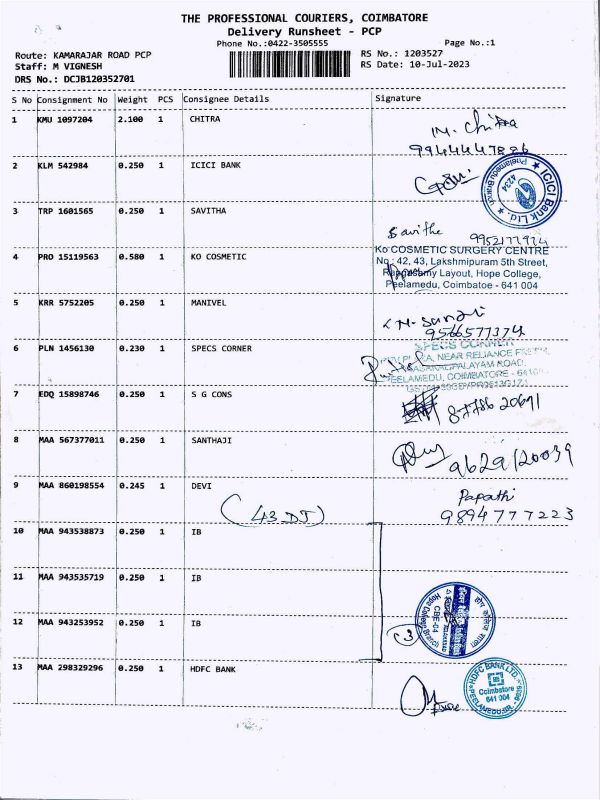 THE PROFESSIONAL COURIERS, COIMBATORE
Delivery Runsheet - PCP
Phone No.:0422-3505555 Page No.:1
Route: KAMARAJAR ROAD PCP RS No.: 1203527
Staff: M VIGNESH RS Date: 10-Jul-2023
DRS No.: DCJB120352701
S No Consignment No Weight PCS Consignee Details Signature
1 KMU 1097204 2.100 1 CHITRA
M. Chitra
9944447886
2 KLM 542984 0.250 1 ICICI BANK
ICICI Bank Ltd. Peelamedu Branch
3 TRP 1601565 0.250 1 SAVITHA
Savithe
4 PRO 15119563 0.580 1 KO COSMETIC
KO COSMETIC SURGERY CENTRE
No : 42, 43, Lakshmipuram 5th Street,
Layout, Hope College,
Peelamedu, Coimbatoe - 641 004
5 KRR 5752205 0.250 1 MANIVEL
9566577374
6 PLN 1456130 0.230 1 SPECS CORNER
SPECS CORNER
NEAR RELIANCE
ROAD,
PEELAMEDU, COIMBATORE
7 EDQ 15898746 0.250 1 S G CONS
87786 20691
8 MAA 567377011 0.250 1 SANTHAJI
9629120039
9 MAA 860198554 0.245 1 DEVI
Papathi
9894777223
(43 DJ)
10 MAA 943538873 0.250 1 IB
11 MAA 943535719 0.250 1 IB
12 MAA 943253952 0.250 1 IB
3
Hope College Branch
CBE-04
13 MAA 298329296 0.250 1 HDFC BANK
HDFC BANK LTD.
Coimbatore
641 004